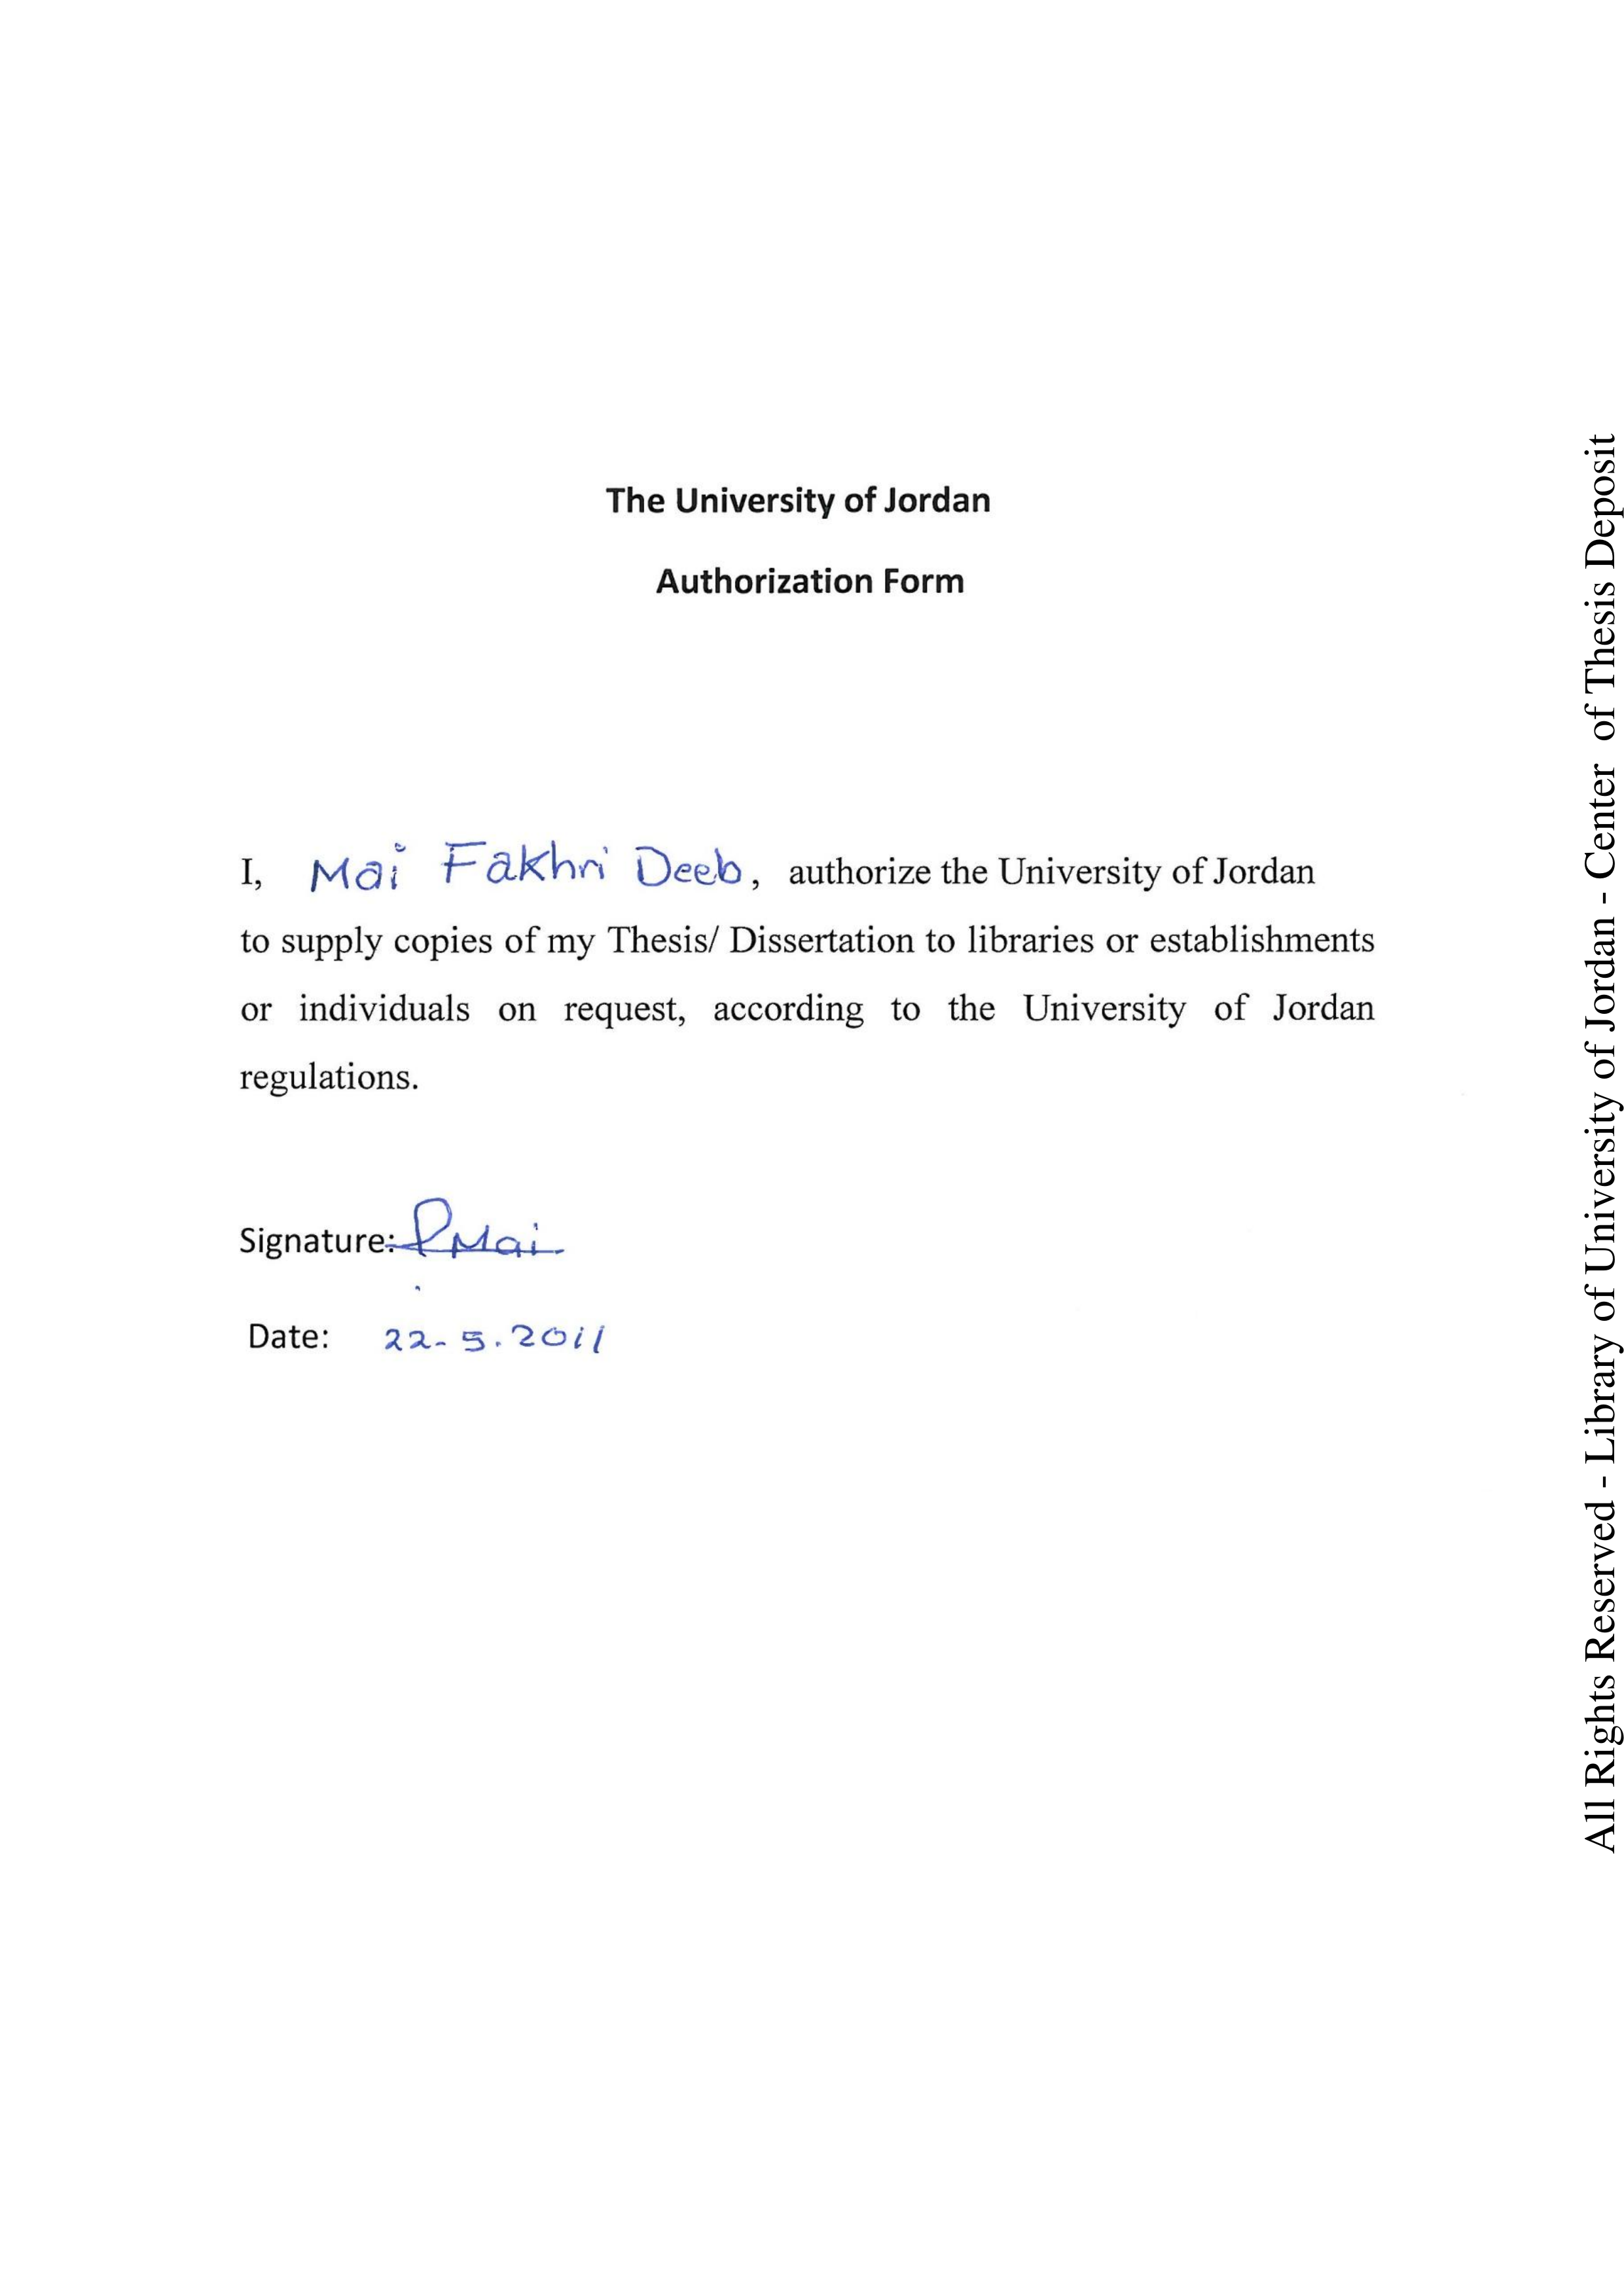 The University of Jordan
Authorization Form
I, Mai Fakhri Deeb, authorize the University of Jordan
to supply copies of my Thesis/ Dissertation to libraries or establishments
or individuals on request, according to the University of Jordan
regulations.
Signature: Mai
Date: 22-5.2011
All Rights Reserved - Library of University of Jordan - Center of Thesis Deposit